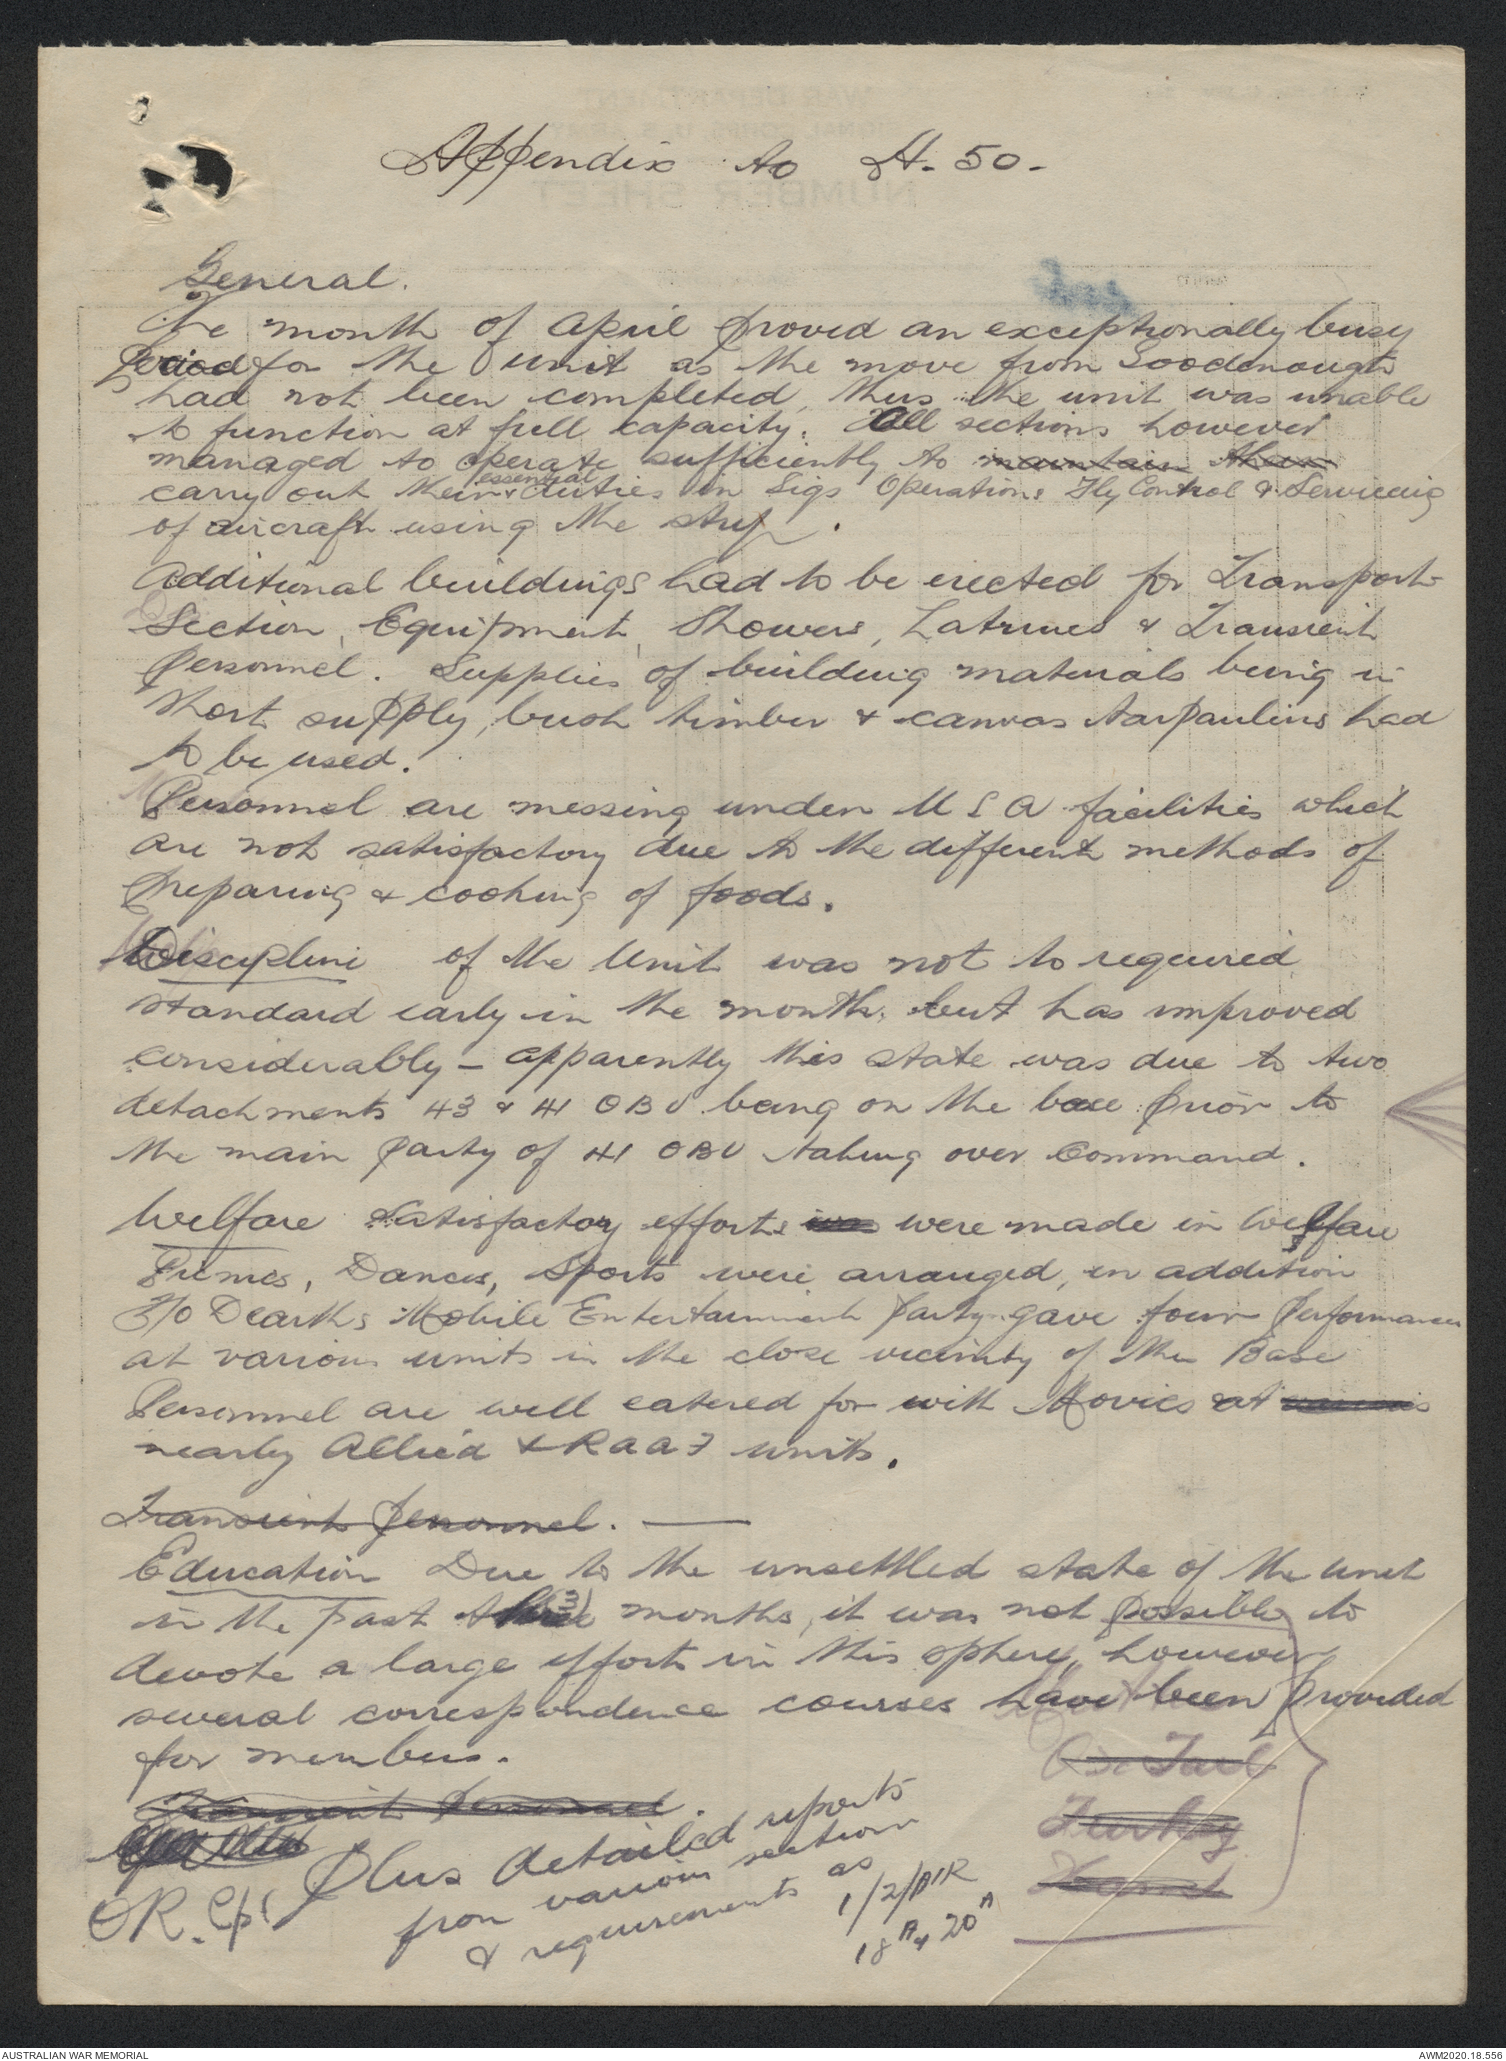 Appendix to A. 50.
General.
The month of April proved an exceptionally busy
Period for the unit as the move from Goodenough
had not been completed, thus the unit was unable
to function at full capacity. All sections however
managed to operate sufficiently to maintain their
carry out their essential duties in Sigs Operations Fly Control & Servicing
of aircraft using the strip.
Additional buildings had to be erected for Transport
Section, Equipment, Showers, Latrines & Transient
personnel. Supplies of building materials being in
short supply, bush timber & canvas tarpaulins had
to be used.
Personnel are messing under U S A facilities which
are not satisfactory due to the different methods of
preparing & cooking of foods.
Discipline of the Unit was not to required
standard early in the month, but has improved
considerably - apparently this state was due to two
detachments 43 & 41 OBU being on the base prior to
the main party of 41 OBU taking over Command.
Welfare Satisfactory efforts was were made in Welfare
Filmes, Dances, Sports were arranged, in addition
F/O Dearth's Mobile Entertainment Party gave four Performances
at various units in the close vicinity of the Base
Personnel are well catered for with Movies at various
nearby Allied & RAAF units.
Transient Personnel.
Education Due to the unsettled state of the unit
in the past three (3) months, it was not possible to
devote a large effort in this sphere, however
several correspondence courses have been provided
for members.
Transient Personnel.
Turkey
OR. Cpl
Plus detailed reports
from various section
& requirements as
1/2/AIR
18A & 20A
NUMBER SHEET
AUSTRALIAN WAR MEMORIAL
AWM2020.18.556